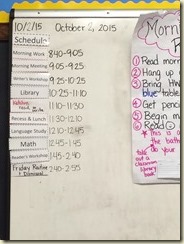 10/2/15 October 2, 2015
Schedule
Morning Work 8:40-9:05
Morning Meeting 9:05-9:25
Writer's Workshop 9:25-10:25
Library 10:25-11:10
11:10-11:30
Recess & Lunch 11:30-12:10
Language Study 12:10-12:45
Math 12:45-1:45
Reader's Workshop 1:45-2:40
Friday Routine & Dismissal 2:40-2:55
Morning
① Read mor
② Hang up
③ Bring
blue table
④ Get penci
⑤ Begin m
⑥ Read
★ This is a
do your